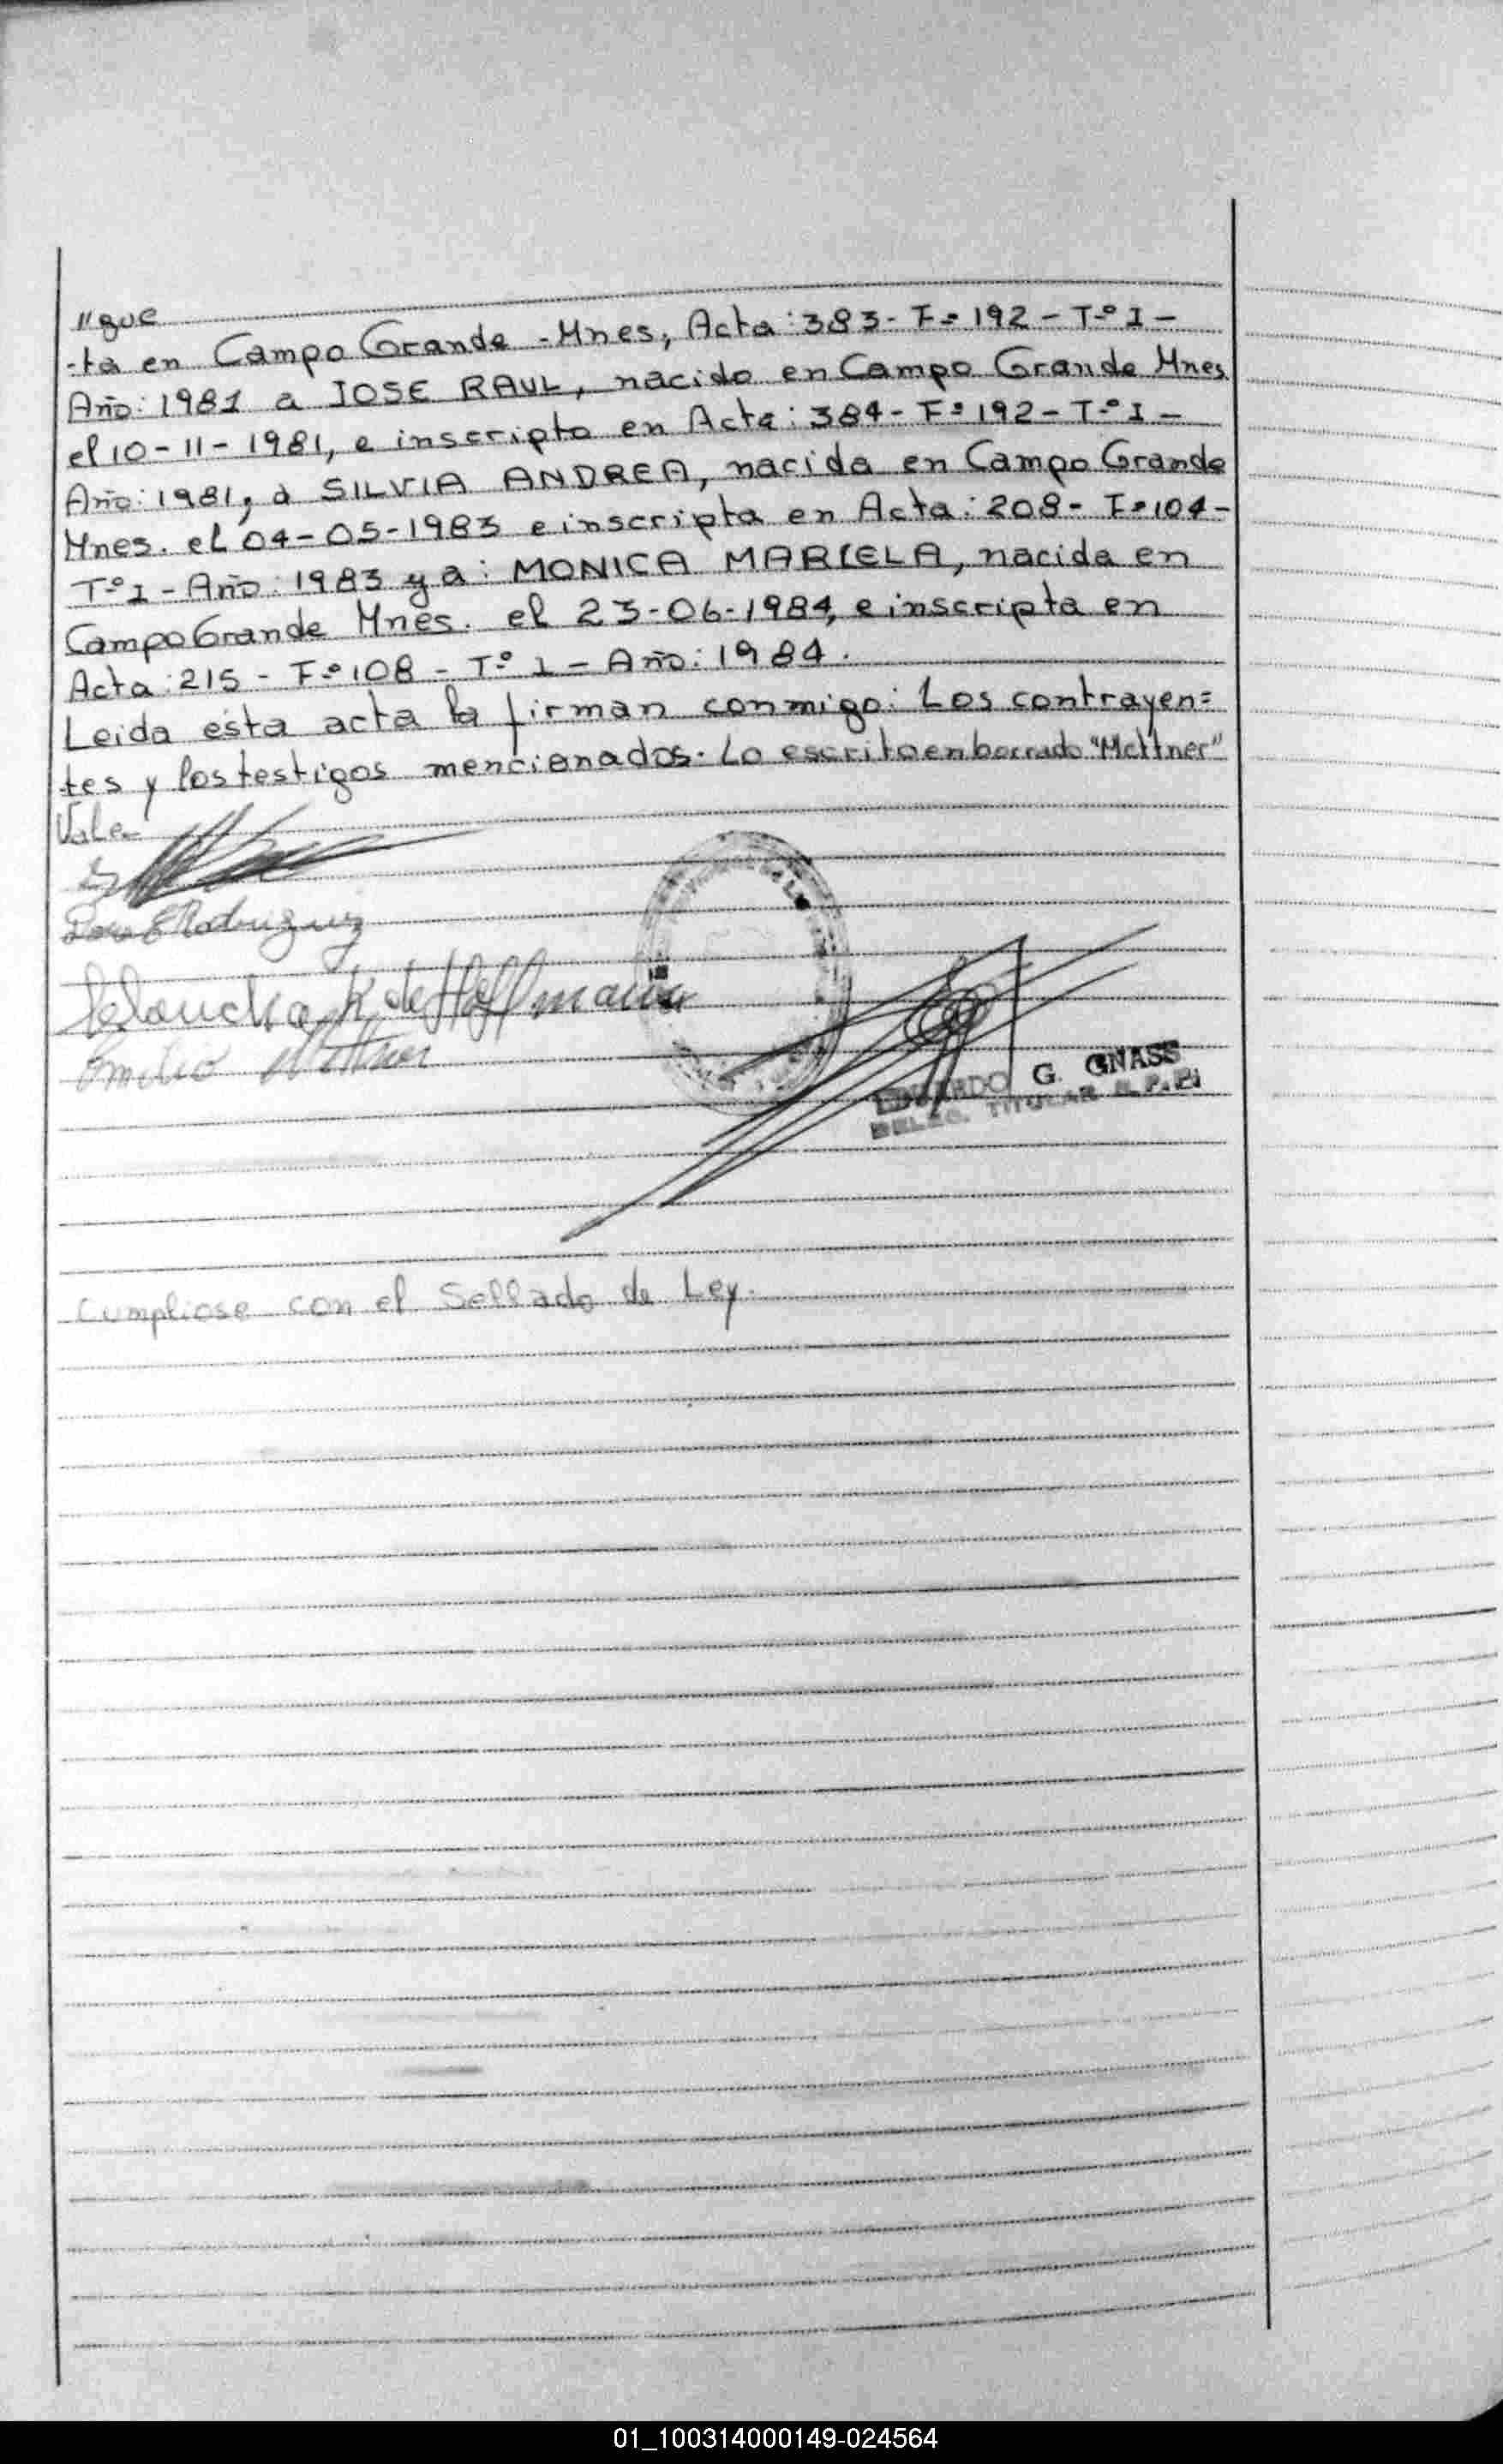 "gue
-ta en Campo Grande - Mnes, Acta: 383 - Fº 192 - Tº I -
Año: 1981 a JOSE RAUL, nacido en Campo Grande Mnes
el 10-11-1981, e inscripto en Acta: 384 - Fº 192 - Tº I -
Año: 1981, a SILVIA ANDREA, nacida en Campo Grande
Mnes. el 04-05-1983 e inscripta en Acta: 208 - Fº 104 -
Tº I - Año: 1983 y a: MONICA MARIELA, nacida en
Campo Grande Mnes. el 23-06-1984, e inscripta en
Acta: 215 - Fº 108 - Tº I - Año: 1984.
Leida esta acta la firman conmigo: Los contrayen=
tes y los testigos mencionados. Lo escrito en borrado "Mettner"
Vale-
E Rodriguez
K de Hoffmann
Emilio Mettner
EDUARDO G. GNASS
DELEG. TITULAR R.P.P.
Cumpliose con el Sellado de Ley.
01_100314000149-024564